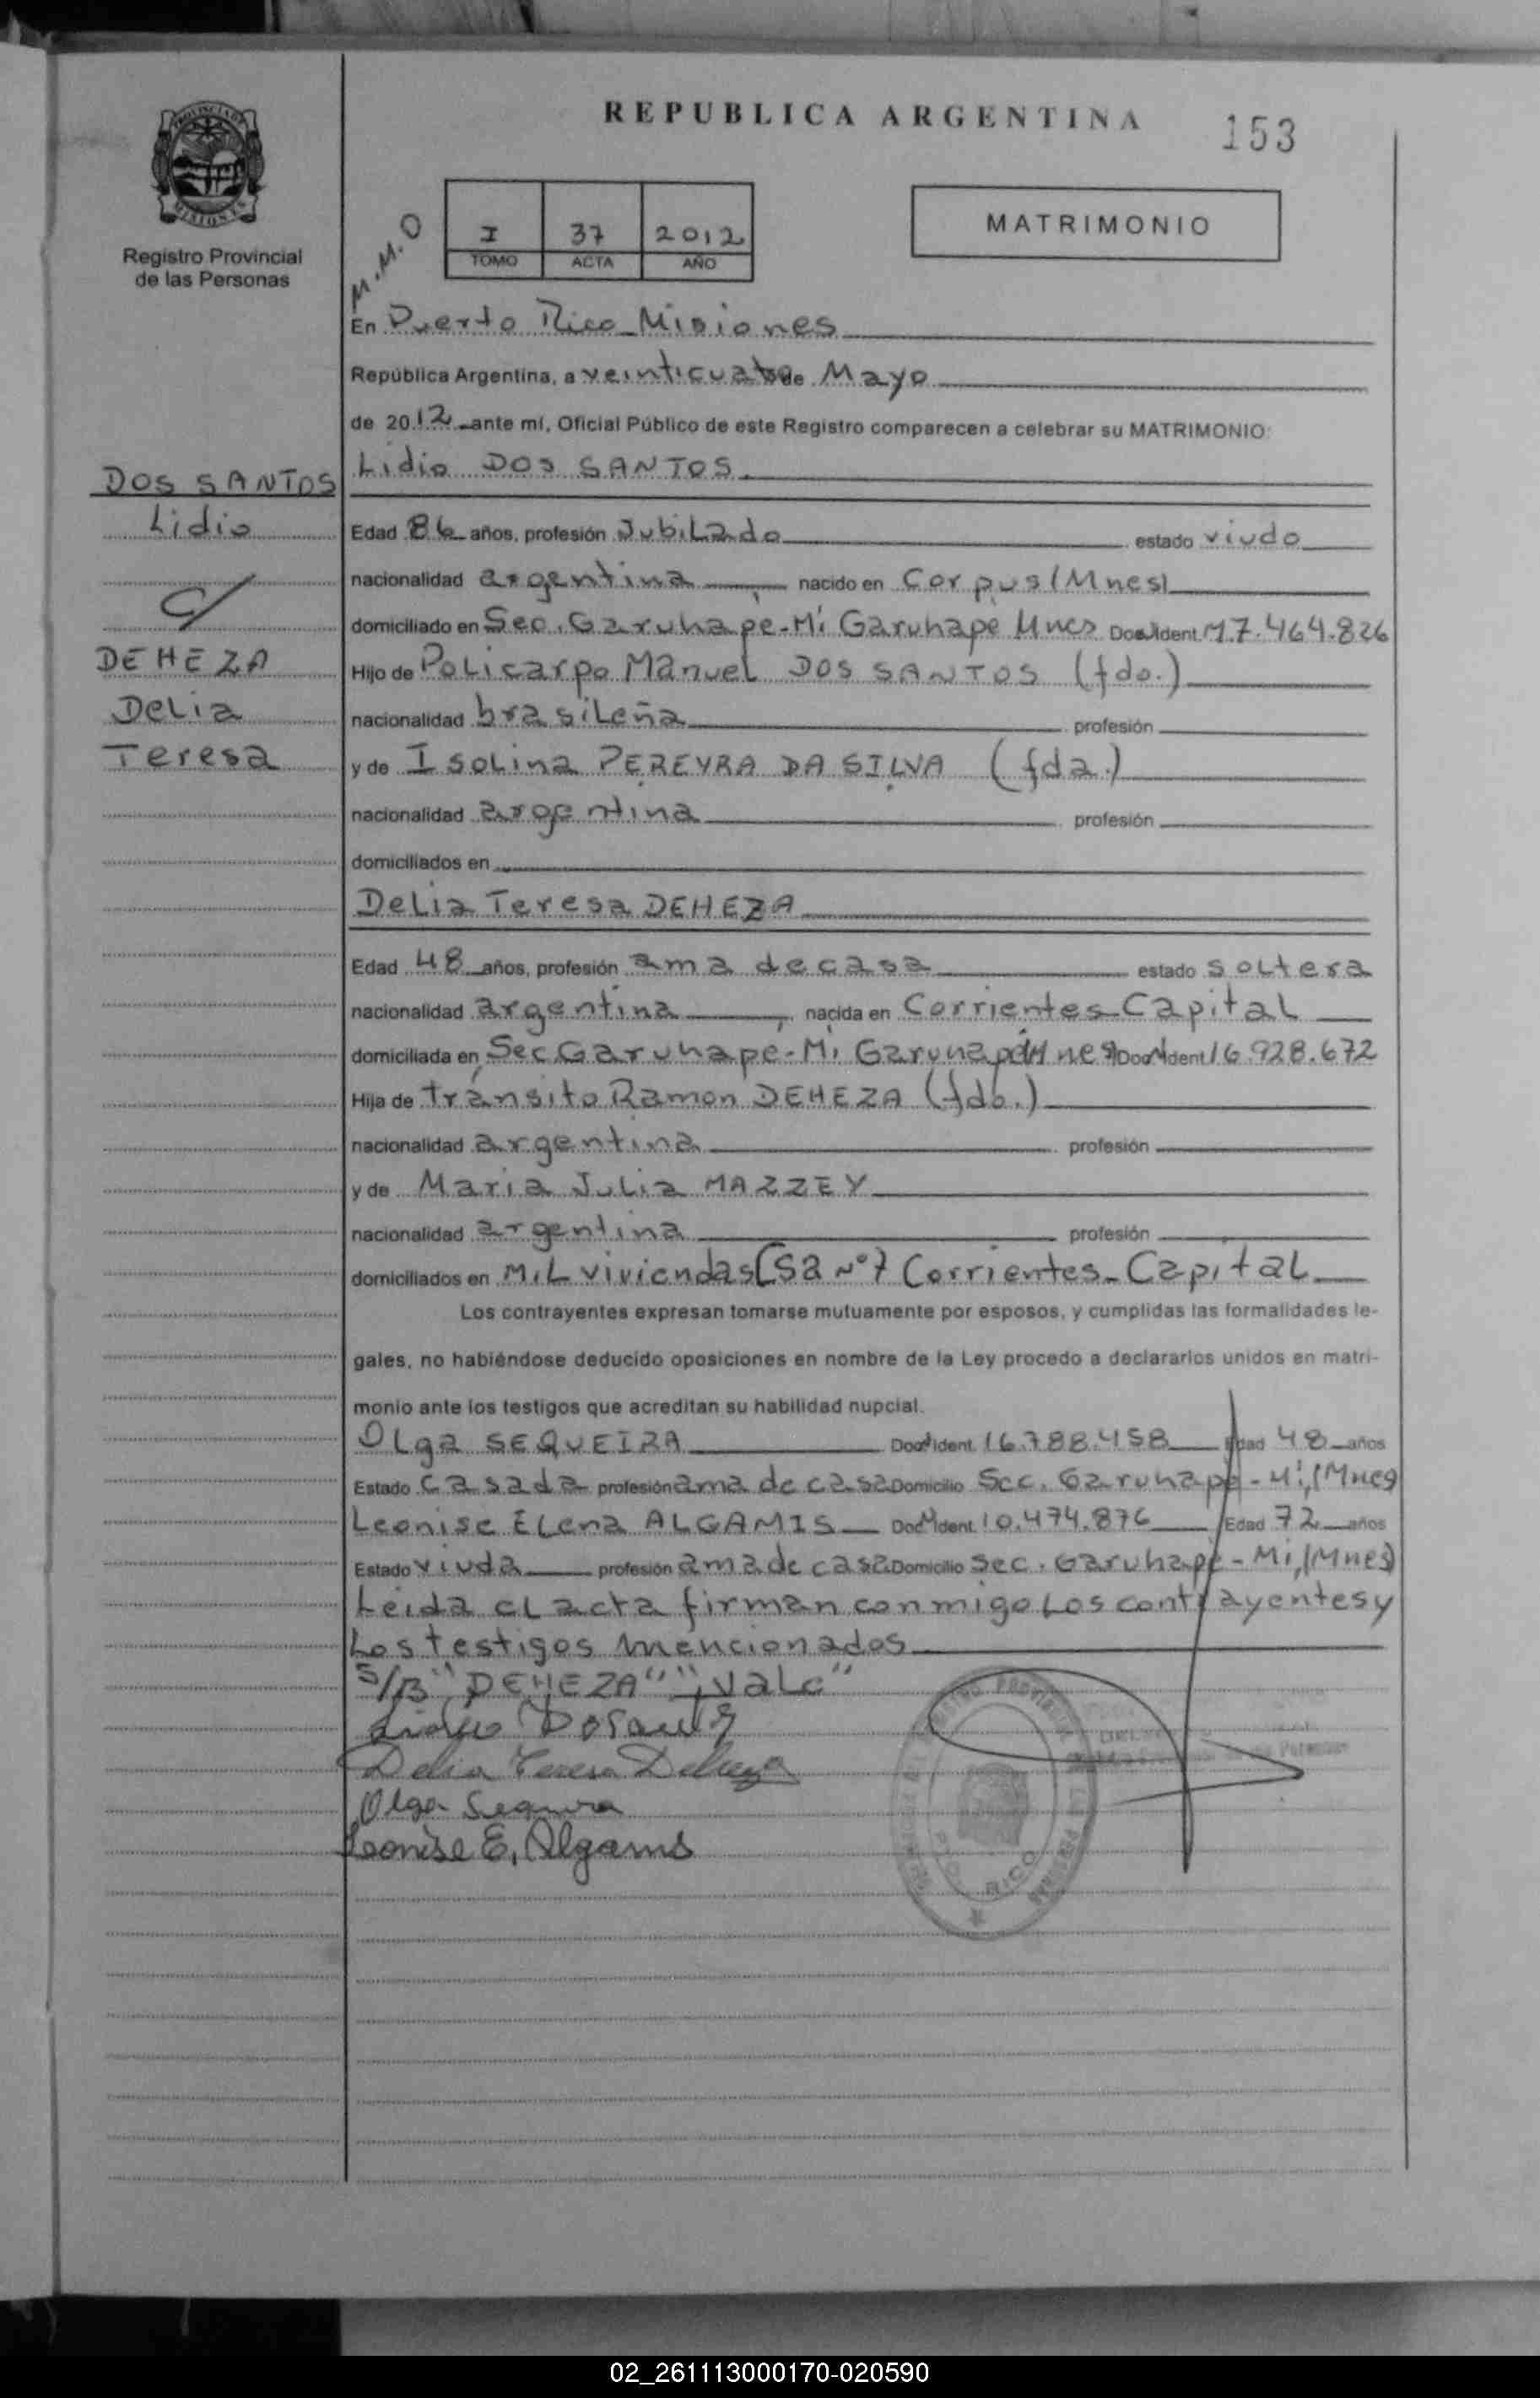 REPUBLICA ARGENTINA
153
PROVINCIA DE
MISIONES
Registro Provincial
de las Personas
M.M.O
I 37 2012
TOMO ACTA AÑO
MATRIMONIO
En Puerto Rico Misiones
República Argentina, a veinticuatro de Mayo
de 2012 ante mí, Oficial Público de este Registro comparecen a celebrar su MATRIMONIO:
Lidio DOS SANTOS
DOS SANTOS
Lidio
C/
DEHEZA
Delia
Teresa
Edad 86 años, profesión Jubilado estado viudo
nacionalidad argentina nacido en Corpus (Mnes)
domiciliado en Sec. Garuhapé-Mí Garuhape Mnes Doc. Ident. M7.464.826
Hijo de Policarpo Manuel DOS SANTOS (fdo.)
nacionalidad brasileña profesión
y de Isolina PEREYRA DA SILVA (fda.)
nacionalidad argentina profesión
domiciliados en
Delia Teresa DEHEZA
Edad 48 años, profesión ama de casa estado soltera
nacionalidad argentina nacida en Corrientes Capital
domiciliada en Sec Garuhape-Mi Garuhapé Mnes Doc. Ident 16.928.672
Hija de Tránsito Ramon DEHEZA (fdo.)
nacionalidad argentina profesión
y de Maria Julia MAZZEY
nacionalidad argentina profesión
domiciliados en Mil viviendas Corrientes-Capital
Los contrayentes expresan tomarse mutuamente por esposos, y cumplidas las formalidades le-
gales, no habiéndose deducido oposiciones en nombre de la Ley procedo a declararlos unidos en matri-
monio ante los testigos que acreditan su habilidad nupcial.
Olga SEQUEIRA Doc. Ident. 16.788.458 Edad 48 años
Estado casada profesión ama de casa Domicilio Sec. Garuhapé-Mí, (Mnes)
Leonise Elena ALGAMIS Doc. Ident. 10.474.876 Edad 72 años
Estado viuda profesión ama de casa Domicilio Sec. Garuhapé-Mi, (Mnes)
Leida el acta firman conmigo los contrayentes y
los testigos mencionados
S/B "DEHEZA" "Vale"
Lidio Dosantos
Delia Teresa Deheza
Olga Sequeira
Leonise E. Algamis
PTO. RICO
02_261113000170-020590